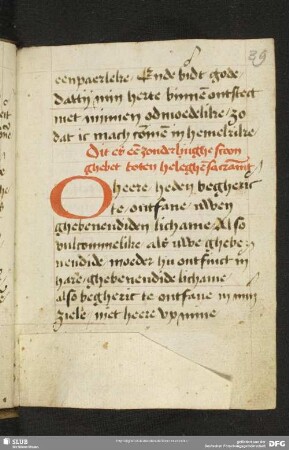 89
eenpaerlike / Ende bidt gode /
dat hy mijn herte binnen ontstect
met minnen odmoedelike / zo
dat ic mach comē in hemelrike
Dit es eē zonderlinghe scoon
ghebet toten heleghē sacramēt
O heere heden begheric
te ontfane / uwen
ghebenendiden lichame Also
vulcommelike als uwe ghebe=
nendide / moeder hu ontfinct in
hare / ghebenendide lichame
also begheric te ontfane in mijn
ziele / met heere up mine
SLUB
DFG